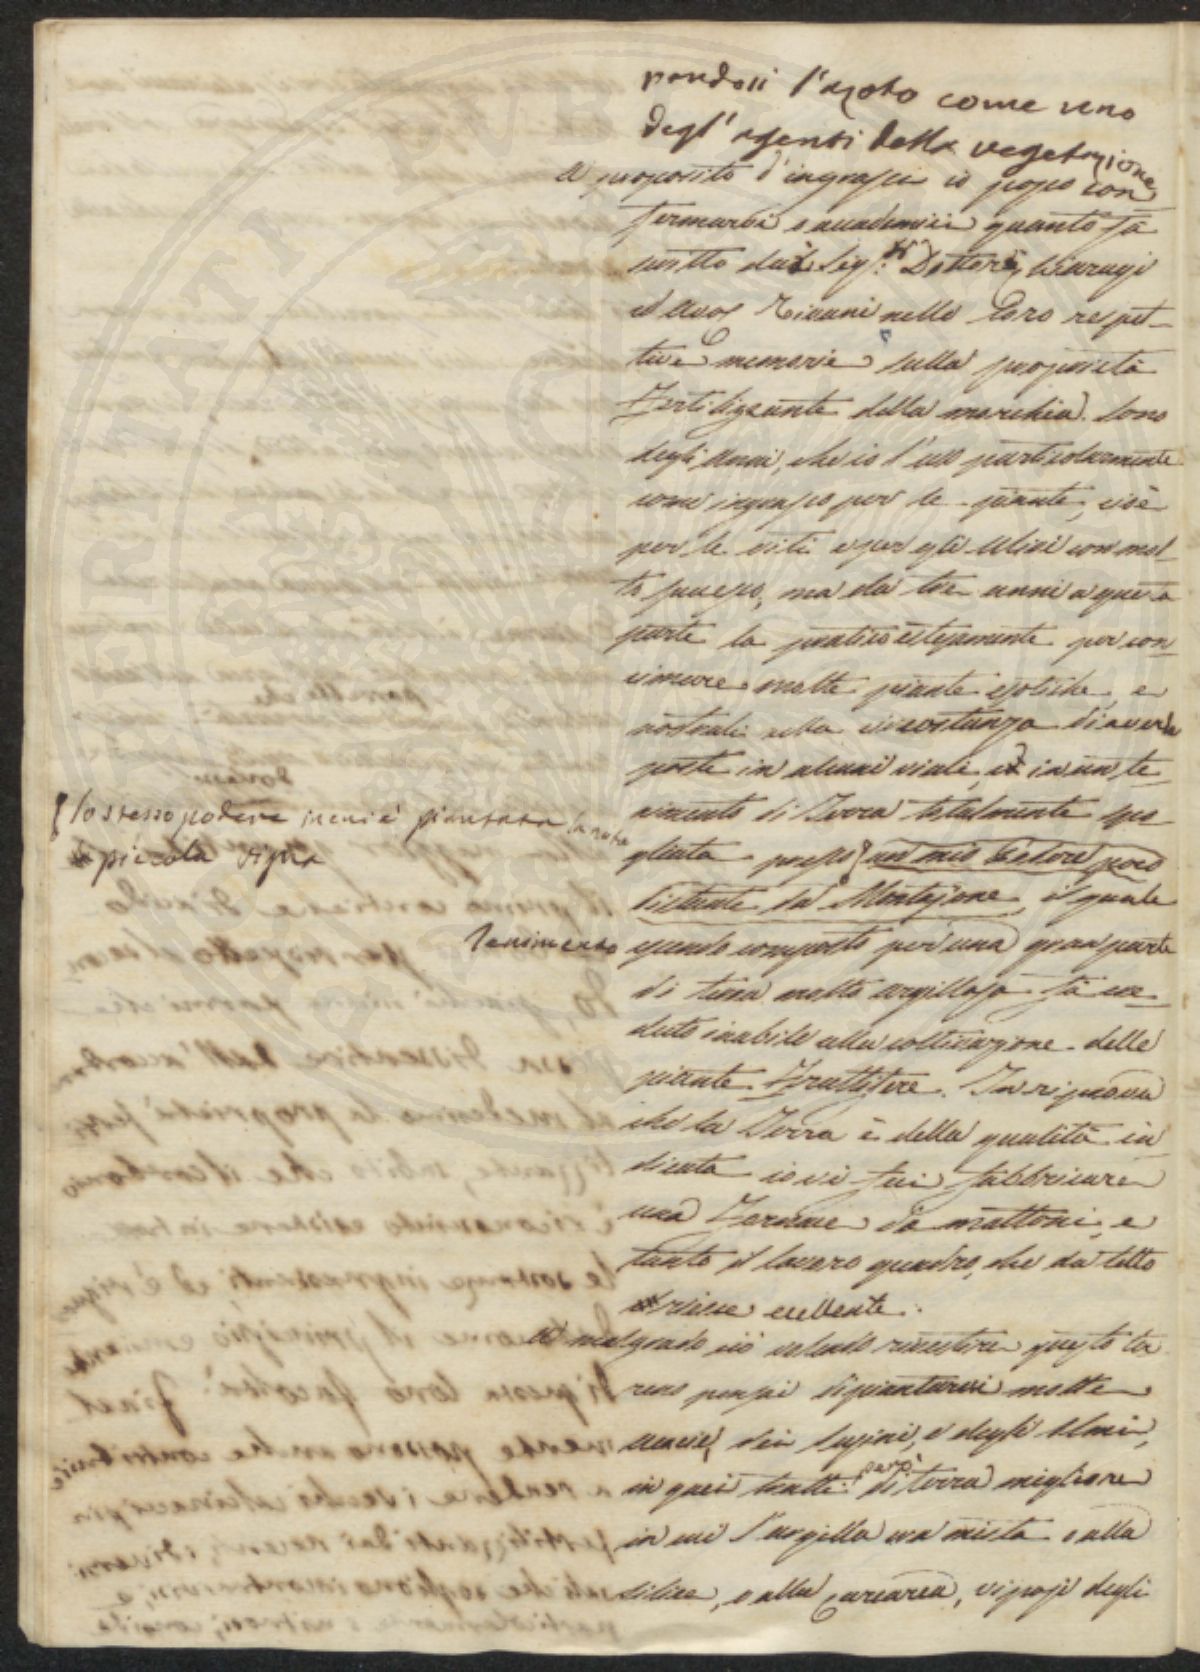 pandosi l'azoto come uno
degl'agenti della vegetazione
A proposito d'ingrassi io posso con
fermarvi o accademici quanto fà
scritto dai Sigri Dottori Chiarugi
ed Avvo nelle loro respet-
tive memorie sulla proprietà
fertilizzante della morchia. Sono
degli anni, che io l'uso particolarmente
come ingrasso per le piante, cioè
per le viti e per gli ulivi con mol-
to successo, ma da tre anni a questa
parte la pratico estesamente per con-
cimare molte piante esotiche, e
nostrali nella circostanza di averle
poste in alcuni viali, ed in un te-
nimento di Terra totalmente spo-
gliata presso { un mio Podere poco
distante da Montajone, il quale
{ lo stesso podere in cui è piantata la nostra
piccola vigna
Tenimento
essendo composto per una gran parte
di terra molto argillosa fù cre-
duto inabile alla coltivazione delle
piante Fruttifere. In riprova
che la Terra è della qualità in
dicata io vi feci fabbricare
una Fornace da mattoni, e
tanto il lavoro quadro, che da tetto
riesce eccellente.
Ad malgrado ciò volendo rivestire questo ter
reno pensai di piantarvi molte
acacie, dei lupini, e degli Olmi,
in quei tratti però di terra migliore
in cui l'argilla era mista o alla
silice, o alla calcarea, vi posi degli